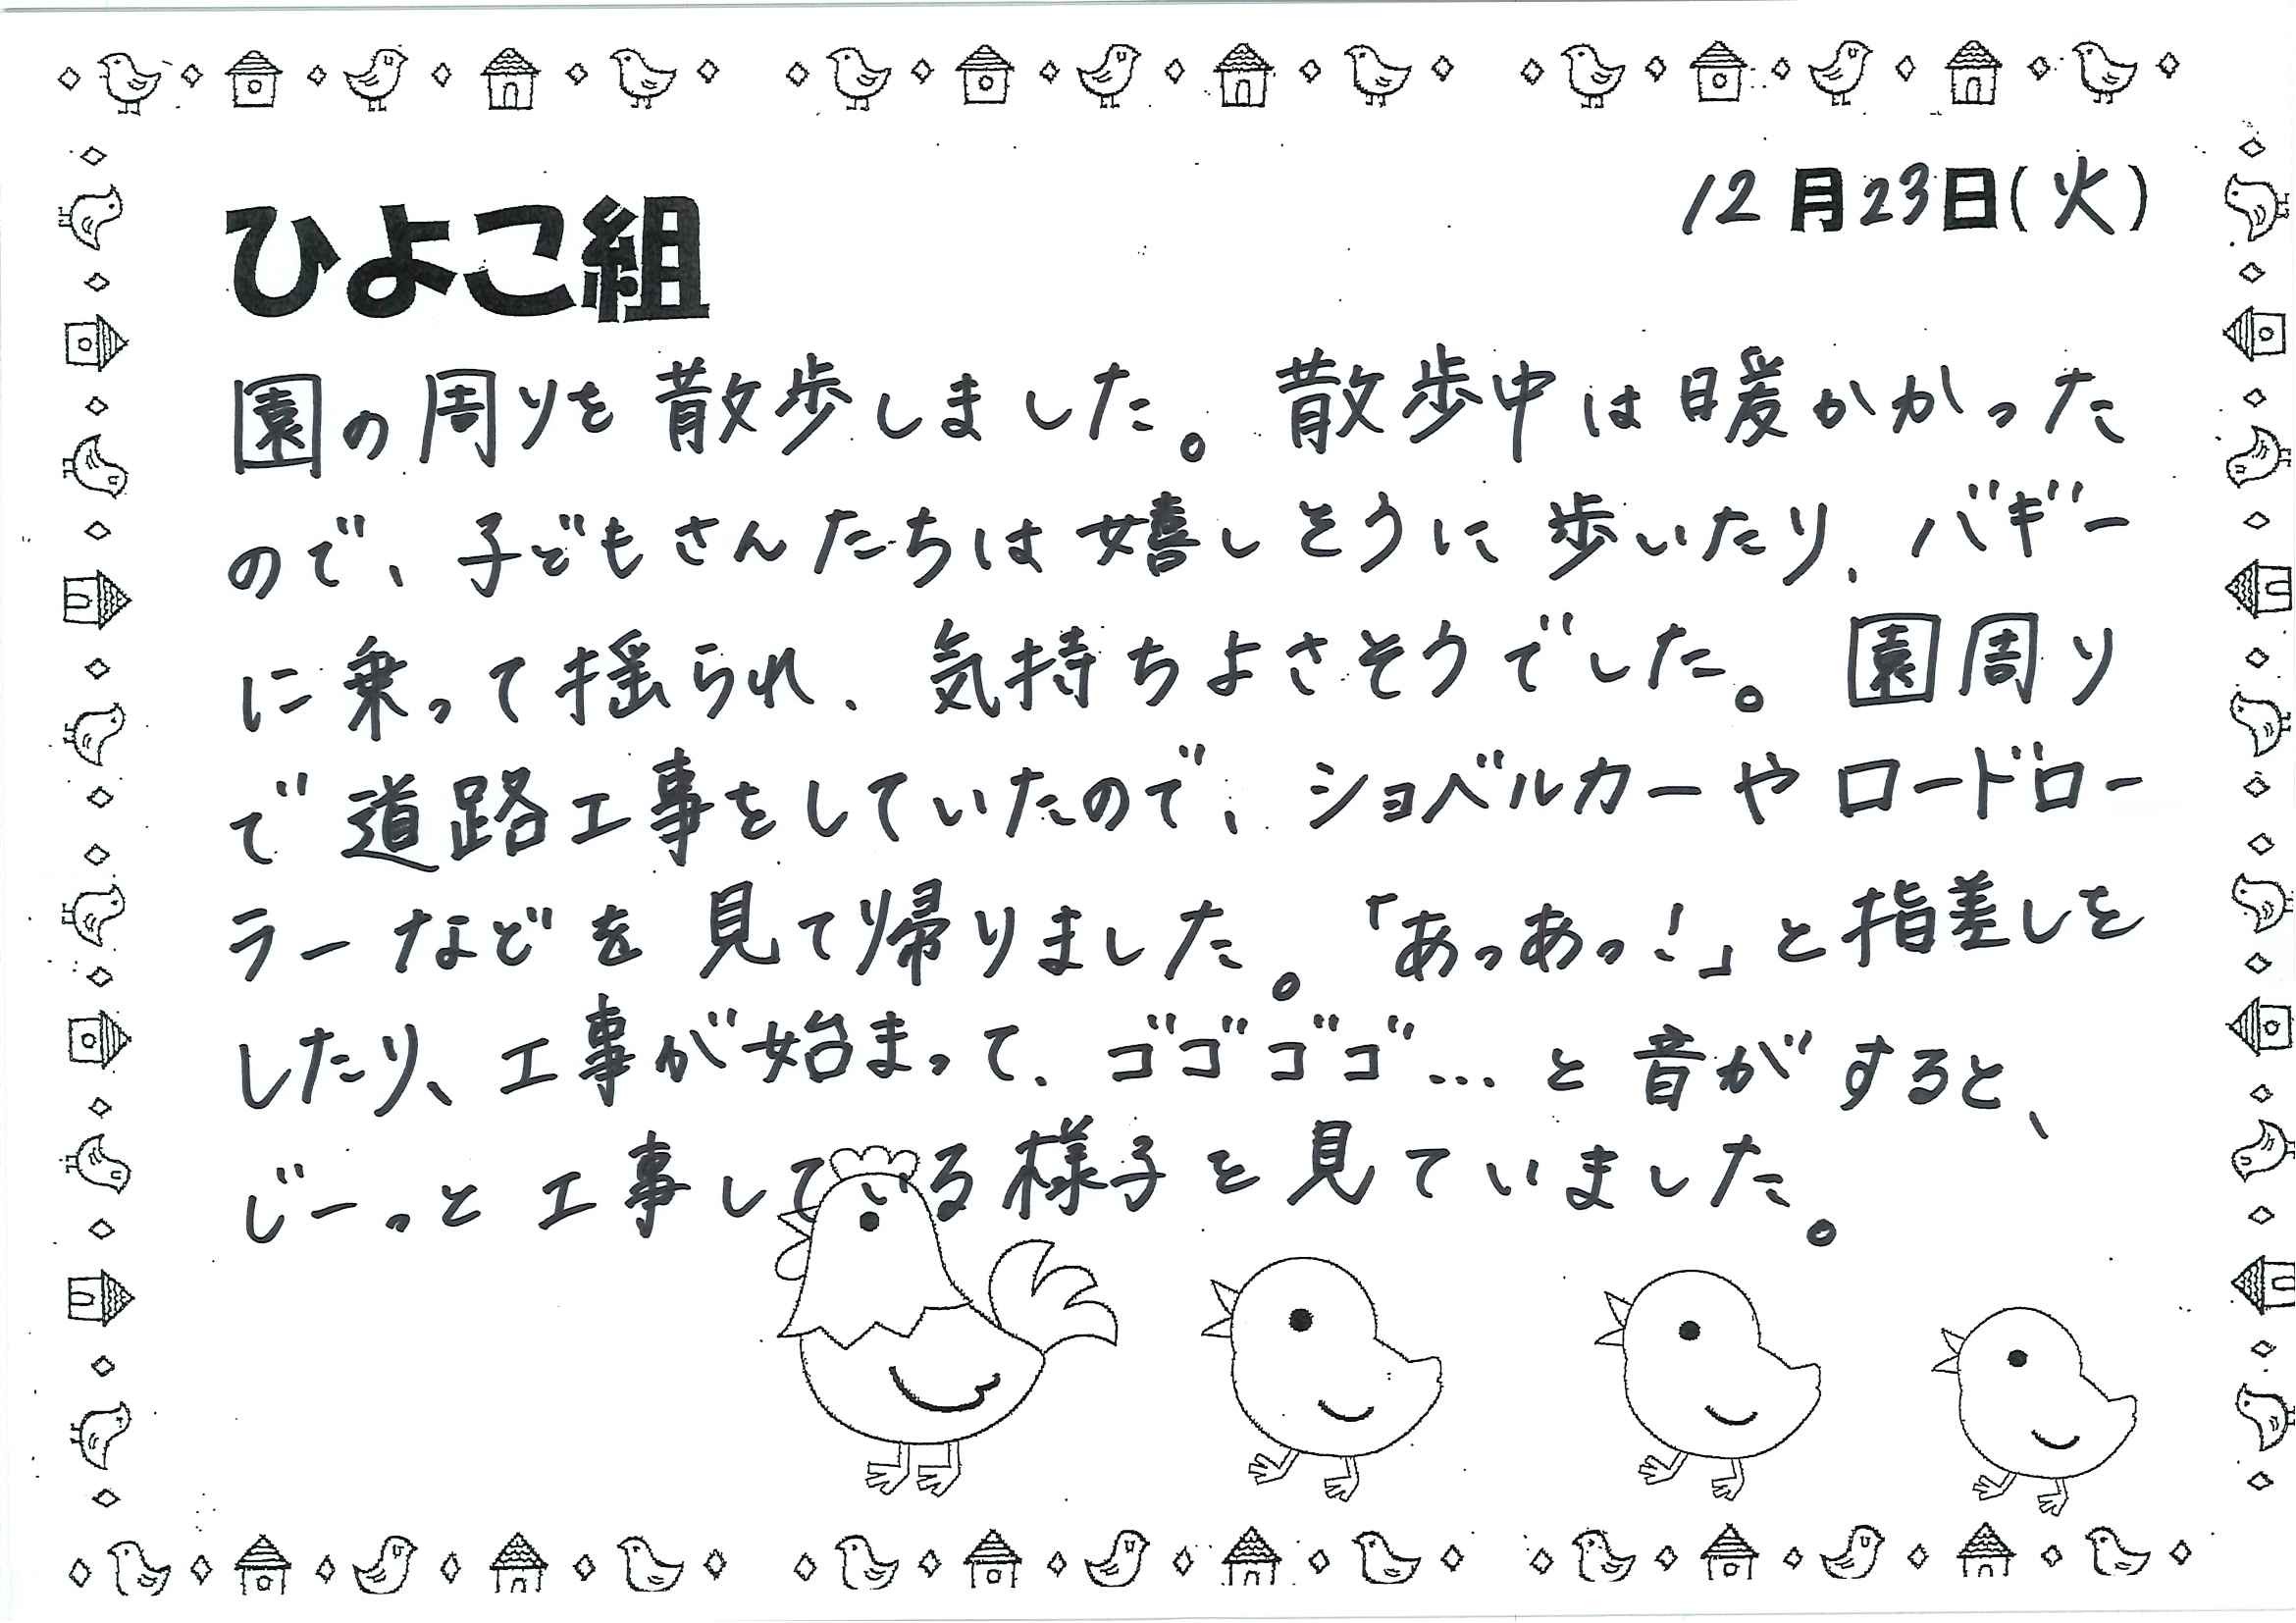 12月23日(火)
ひよこ組
園の周りを散歩しました。散歩中は暖かかった
ので、子どもさんたちは嬉しそうに歩いたり、バギー
に乗って揺られ、気持ちよさそうでした。園周り
で道路工事をしていたので、ショベルカーやロードロー
ラーなどを見て帰りました。「あっあっ!」と指差しを
したり、工事が始まって、ゴゴゴゴ…と音がすると、
じーっと工事している様子を見ていました。